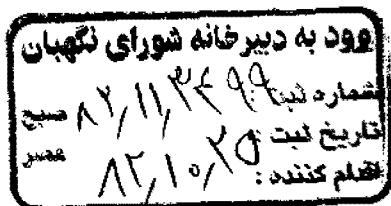 ورود به دبیرخانه شورای نگهبان
شماره ثبت: ۸۲,۱۱,۳۴۹۹ صبح
تاریخ ثبت: ۸۲,۱۰,۲۵ عصر
اقدام کننده: